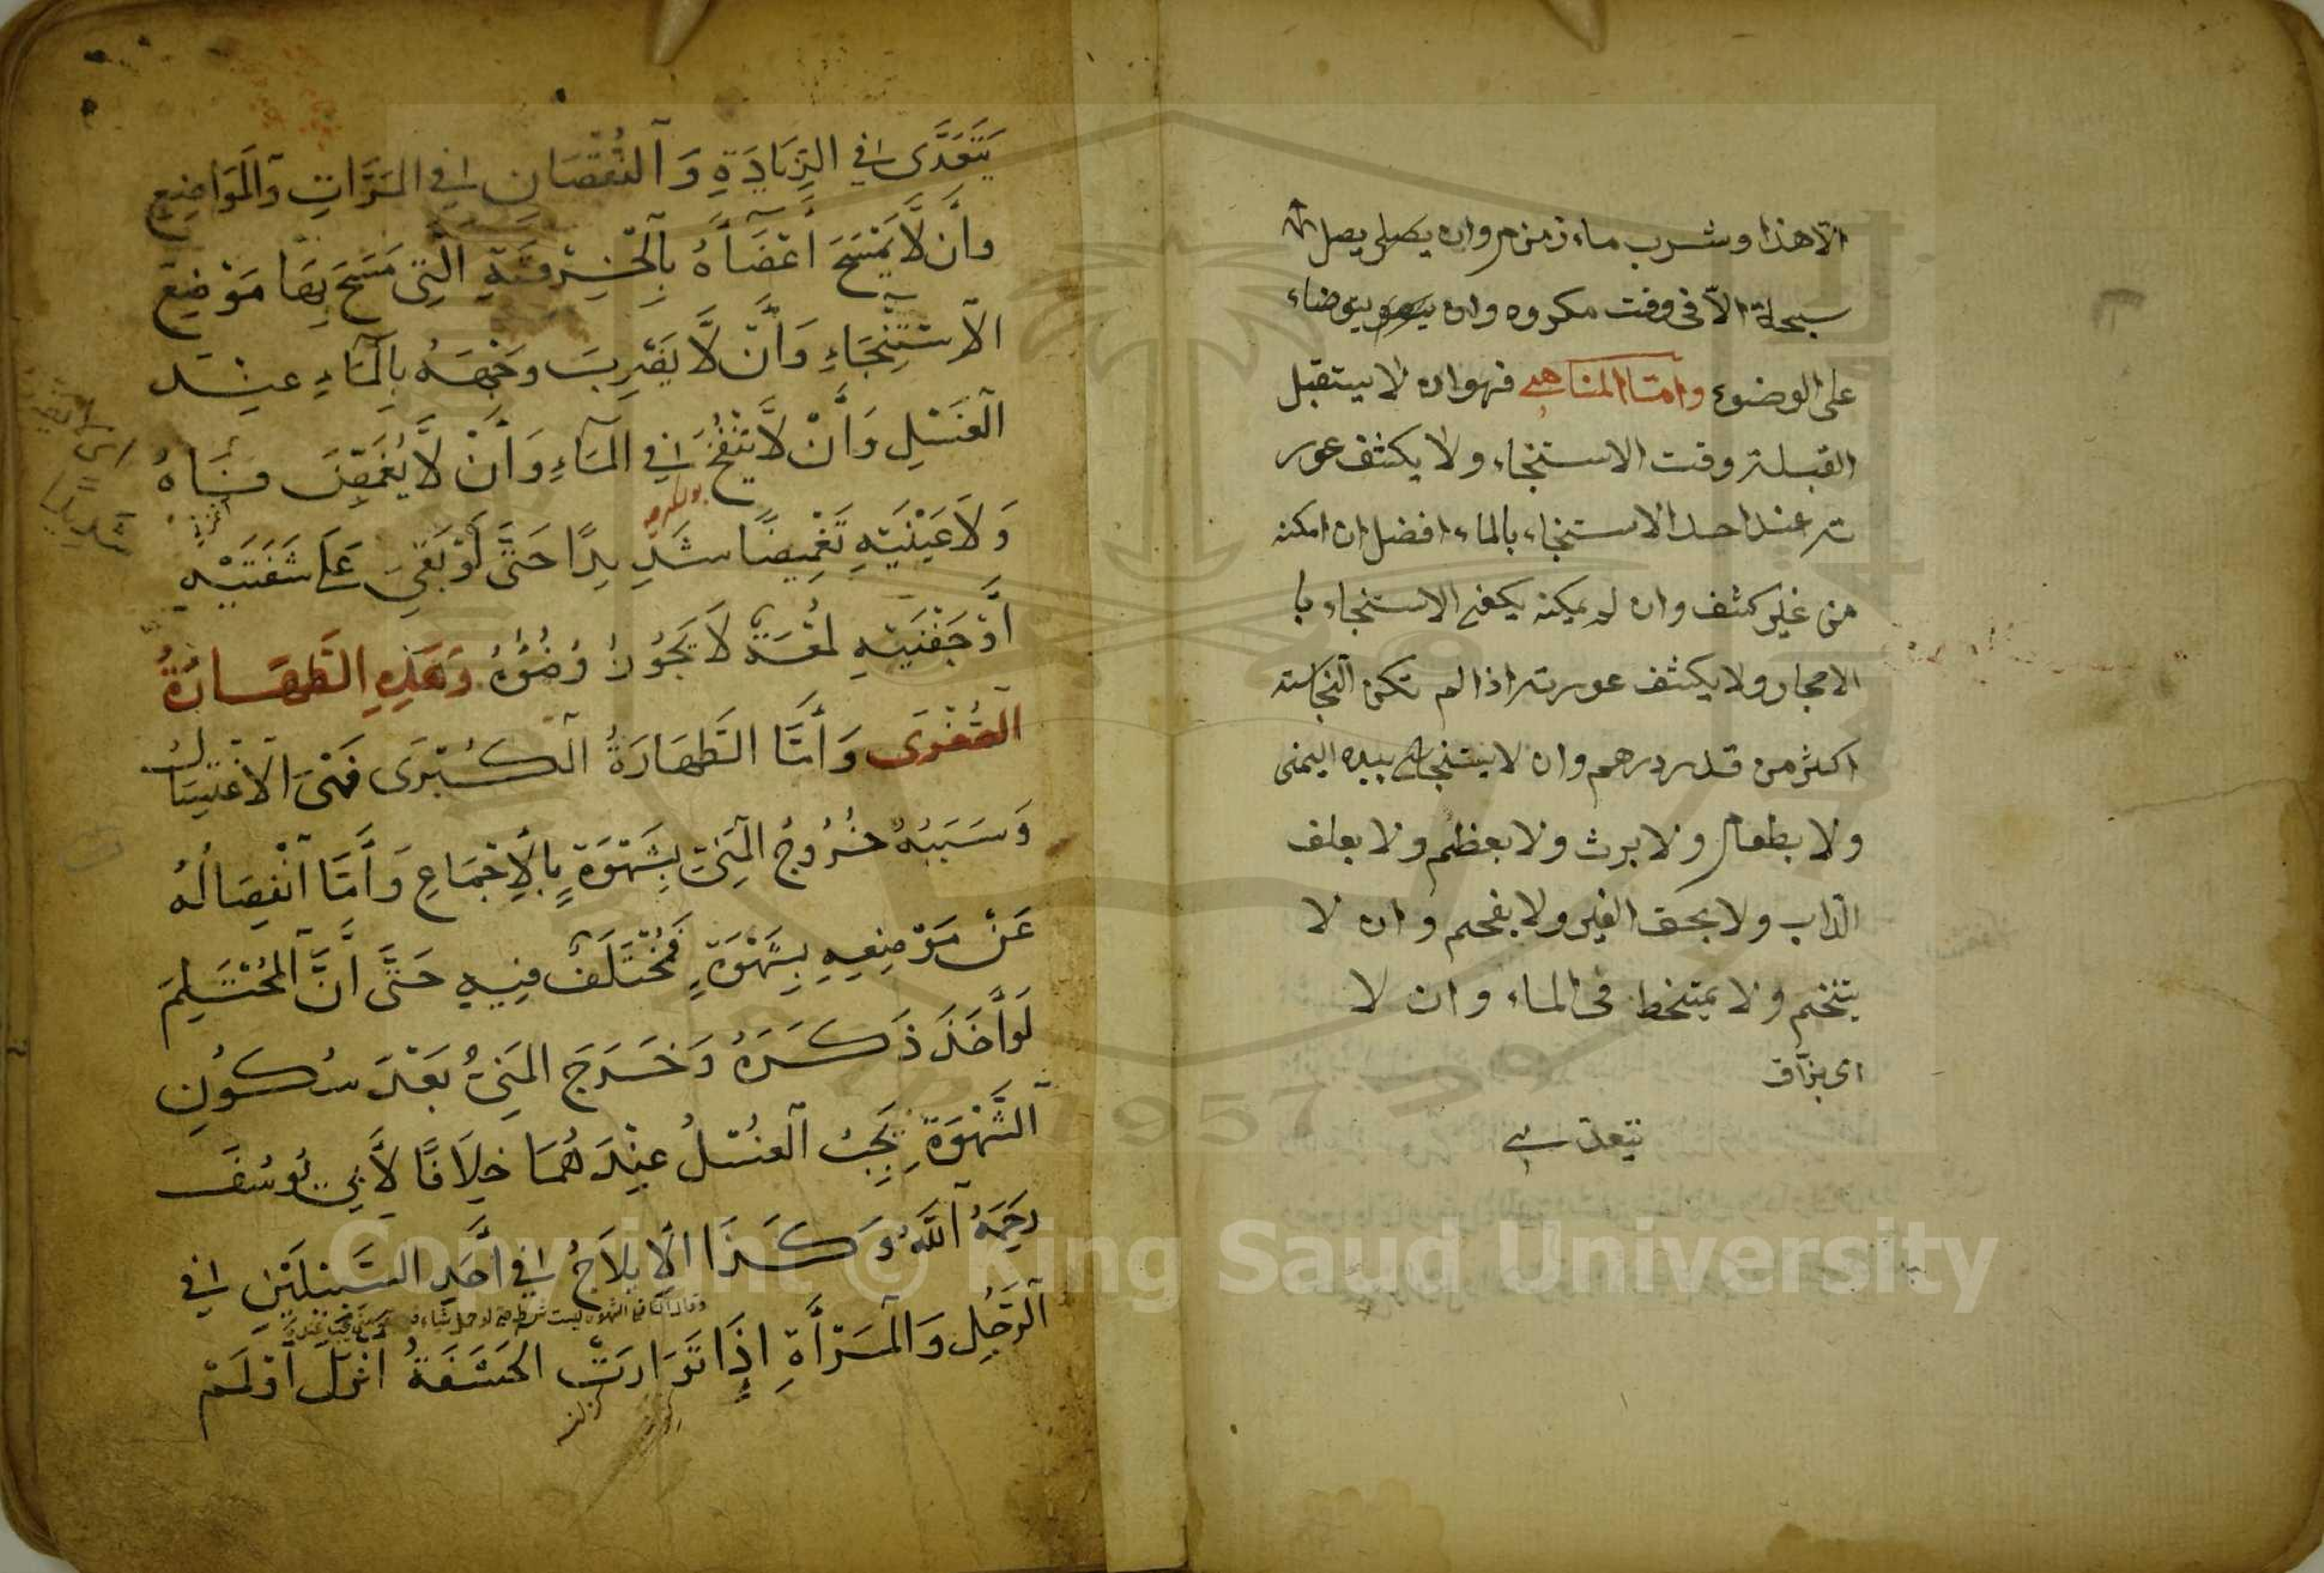 الا هذا وشرب ماء زمزم وان يصلي يصل
سبحة الا فى وقت مكروه وان يتوضاء
على الوضوء واما المناهى فهو ان لا يستقبل
القبلة وقت الاستنجاء ولا يكشف عور
ته عند احد الاستنجاء بالماء افضل ان امكنه
من غير كشف وان لم يمكنه يكفى الاستنجاء با
الاحجار ولا يكشف عورته اذا لم تكن النجاسة
اكثر من قدر درهم وان لا يستنجى بيده اليمنى
ولا بطعام ولا بروث ولا بعظم ولا بعلف
الداب ولا بحق الغير ولا بفحم وان لا
يتنخم ولا يمتخط فى الماء وان لا
اى بزاق
يتعدى
يَتَعَدَّى فِي الزِّيَادَةِ وَالنُّقْصَانِ فِي المَرَّاتِ وَالْمَوَاضِعِ
وَأَنْ لَّا يَمْسَحَ أَعْضَآءَهُ بِالْخِرْقَةِ الَّتِى مَسَحَ بِهَا مَوْضِعَ
الْاسْتِنْجَاءِ وَأَنْ لَّا يَضْرِبَ وَجْهَهُ بِالْمَاءِ عِنْدَ
الْغَسْلِ وَأَنْ لَّا يَنْفُخَ فِي الْمَآءِ وَأَنْ لَّا يُغَمِّضَ فَاهُ
وَلَا عَيْنَيْهِ تَغْمِيضًا شَدِيدًا حَتَّى لَوْ بَقِيَ عَلَى شَفَتَيْهِ
أَوْ جَفْنَيْهِ لُمْعَةٌ لَا يَجُوزُ وُضُوءُهُ وَهَذِهِ الطَّهَارَةُ
الصُّغْرَى وَأَمَّا الطَّهَارَةُ الْكُبْرَى فَهِىَ الْاغْتِسَالُ
وَسَبَبُهُ خُرُوجُ الْمَنِيِّ بِشَهْوَةٍ بِالْإِجْمَاعِ وَأَمَّا انْفِصَالُهُ
عَنْ مَوْضِعِهِ بِشَهْوَةٍ فَمُخْتَلَفٌ فِيهِ حَتَّى أَنَّ الْمُحْتَلِمَ
لَوْ أَخَذَ ذَكَرَهُ وَخَرَجَ الْمَنِيُّ بَعْدَ سُكُونِ
الشَّهْوَةِ يَجِبُ الْغُسْلُ عِنْدَهُمَا خِلَافًا لِأَبِي يُوسُفَ
رَحِمَهُ اللَّهُ وَكَذَا الْإِيلَاجُ فِي أَحَدِ السَّبِيلَيْنِ فِي
الرَّجُلِ وَالْمَرْأَةِ إِذَا تَوَارَتْ الْحَشَفَةُ أَنْزَلَ أَوْ لَمْ
اى
شديدا
Copyright © King Saud University
1957